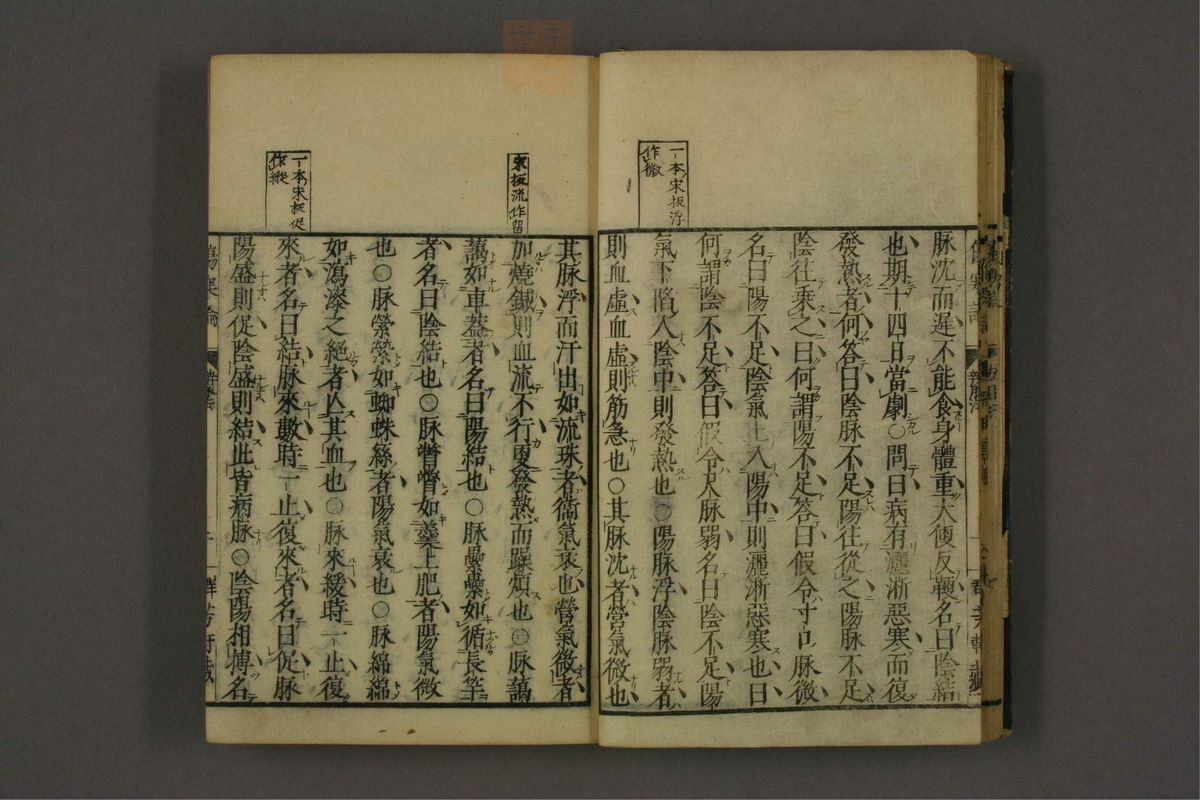 一本宋板浮
作微
脉沈而遲不能食身體重大便反鞕名曰陰結
也期十四日當劇○問曰病有灑淅惡寒而復
發熱者何答曰陰脉不足陽往從之陽脉不足
陰往乘之曰何謂陽不足答曰假令寸口脉微
名曰陽不足陰氣上入陽中則灑淅惡寒也曰
何謂陰不足答曰假令尺脉弱名曰陰不足陽
氣下陷入陰中則發熱也○陽脉浮陰脉弱者
則血虛血虛則筋急也○其脉沈者營氣微也
宋板流作留
一本宋板促
作縱
其脉浮而汗出如流珠者衞氣衰也營氣微者
加燒鍼則血流不行更發熱而躁煩也○脉藹
藹如車蓋者名曰陽結也○脉纍纍如循長竿
者名曰陰結也○脉瞥瞥如羹上肥者陽氣微
也○脉縈縈如蜘蛛絲者陽氣衰也○脉綿綿
如瀉漆之絕者亾其血也○脉來緩時一止復
來者名曰結脉來數時一止復來者名曰促脉
陽盛則促陰盛則結此皆病脉○陰陽相搏名
傷寒論